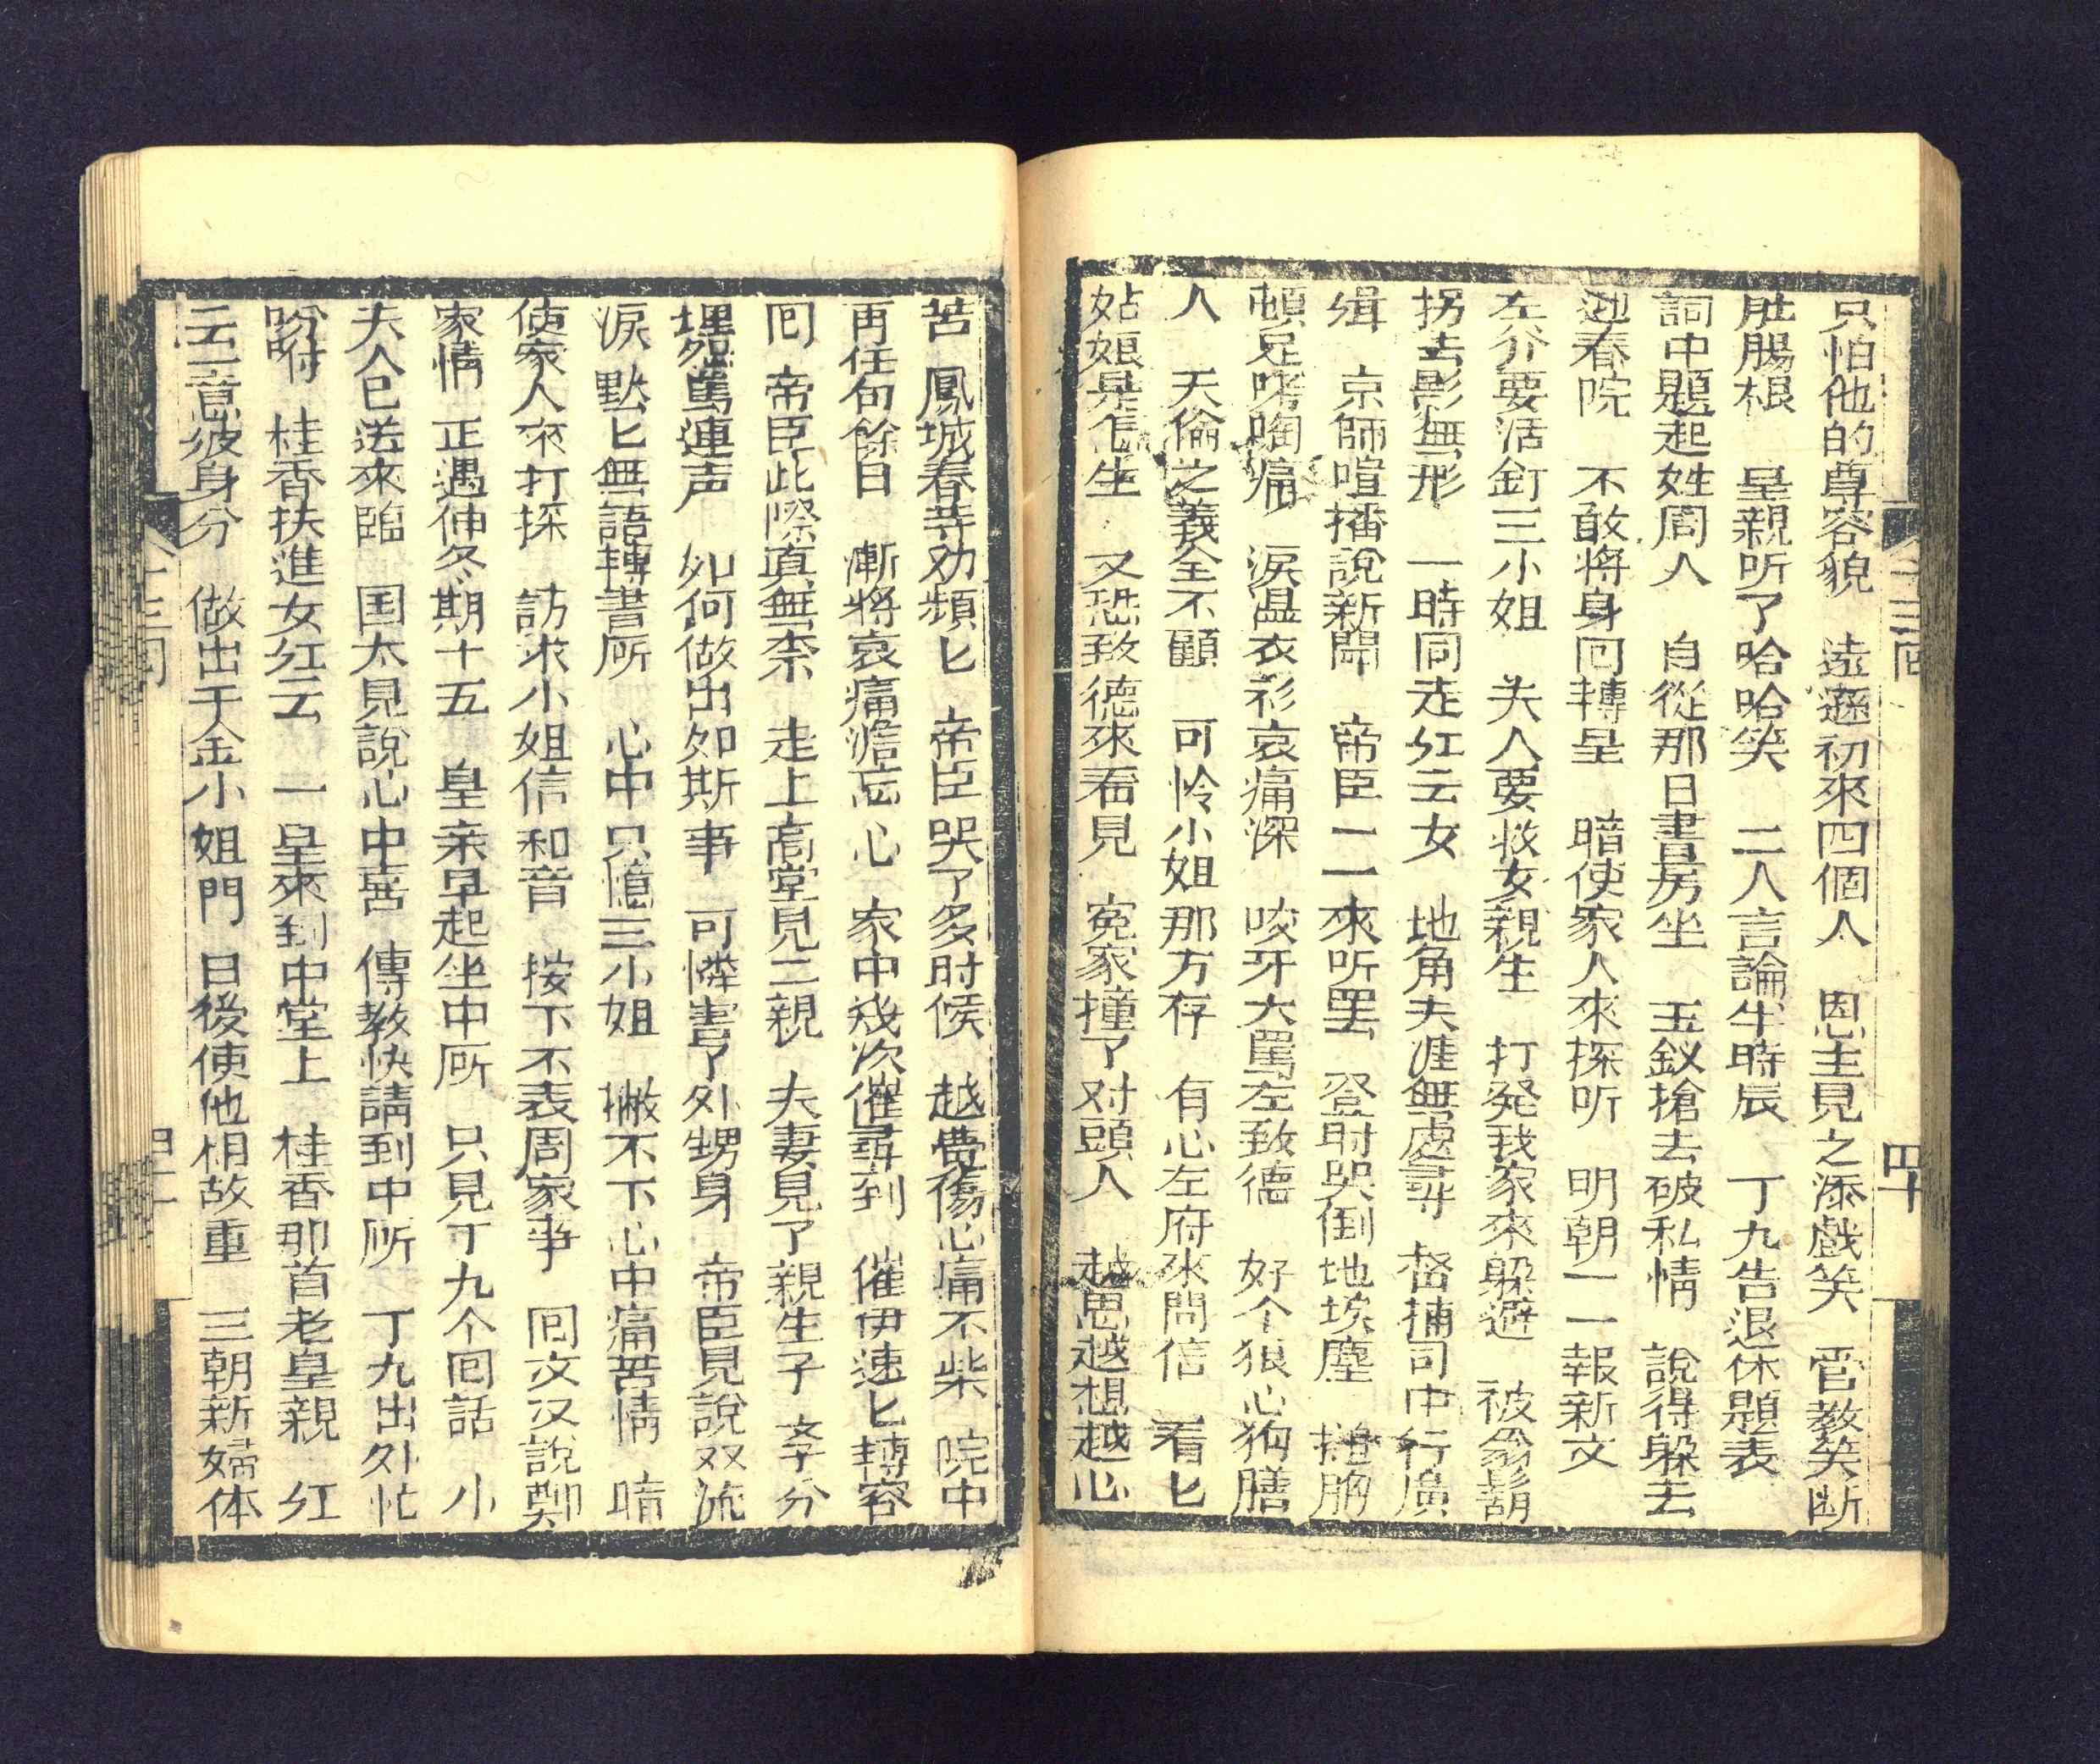 只怕他的尊容貌　遠遜初來四個人　恩主見之添戲笑　管教笑断
肚腸根　呈親听了哈哈笑　二人言論半時辰　丁九告退休題表
詞中題起姓周人　自從那日書房坐　玉釵搶去破私情　說得躲去
迎春院　不敢將身囘轉呈　暗使家人來探听　明朝一一報新文
左爷要活釘三小姐　夫人要救女親生　打発我家來躲避　被翁鬍
拐去影無形　一時同走红云女　地角天涯無處尋　督捕司中行廣
緝　京師喧播說新聞　帝臣一一來听罢　登时哭倒地埃塵　搥胸
頓足嚎啕痛　淚湿衣衫哀痛深　咬牙大罵左致德　好个狼心狗膳
人　天倫之義全不顧　可怜小姐那方存　有心左府來問信　看匕
姑娘是怎生　又恐致德來看見　寃家撞了对頭人　越思越想越心
苦　鳳城春苻劝頻匕　帝臣哭了多时候　越覺傷心痛不柴　院中
再住旬餘日　漸將哀痛澹忘心　家中幾次催尋到　催伊速匕轉容
囘　帝臣此際真無柰　走上高堂見二親　夫妻見了親生子　孝分
埋怨罵連声　如何做出如斯事　可憐害了外甥身　帝臣見說双流
淚　默匕無語轉書厛　心中只憶三小姐　撇不下心中痛苦情　暗
使家人來打探　訪求小姐信和音　按下不表周家事　囘文又說鄭
家情　正遇仲冬期十五　皇亲早起坐中厛　只見丁九个囘話　小
夫人已送來臨　国太見說心中喜　傳教快請到中所　丁九出外忙
吩咐　桂香扶進女红云　一呈來到中堂上　桂香那首老皇親　红
云一意彼身分　做出千金小姐門　日後使他相故重　三朝新婦体